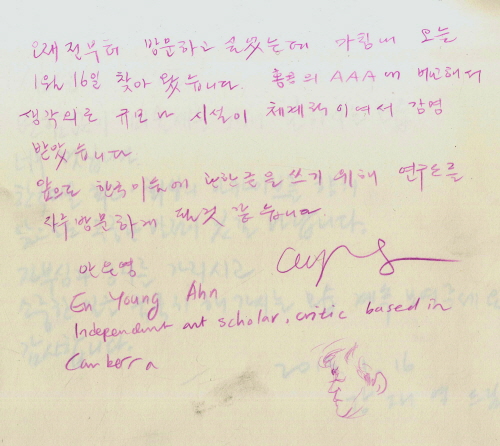 오래전부터 방문하고 싶었는데 가침내 오늘
1월 16일 찾아 왔습니다. 홍콩의 AAA에 비교해서
생각외로 규모나 시설이 체계적이여서 감명
받았습니다
앞으로 한국미술에 관한 글을 쓰기 위해 연구소를
자주 방문하게 될것 같습니다
안은영
En Young Ahn
Independent art scholar, critic based in
Canberra